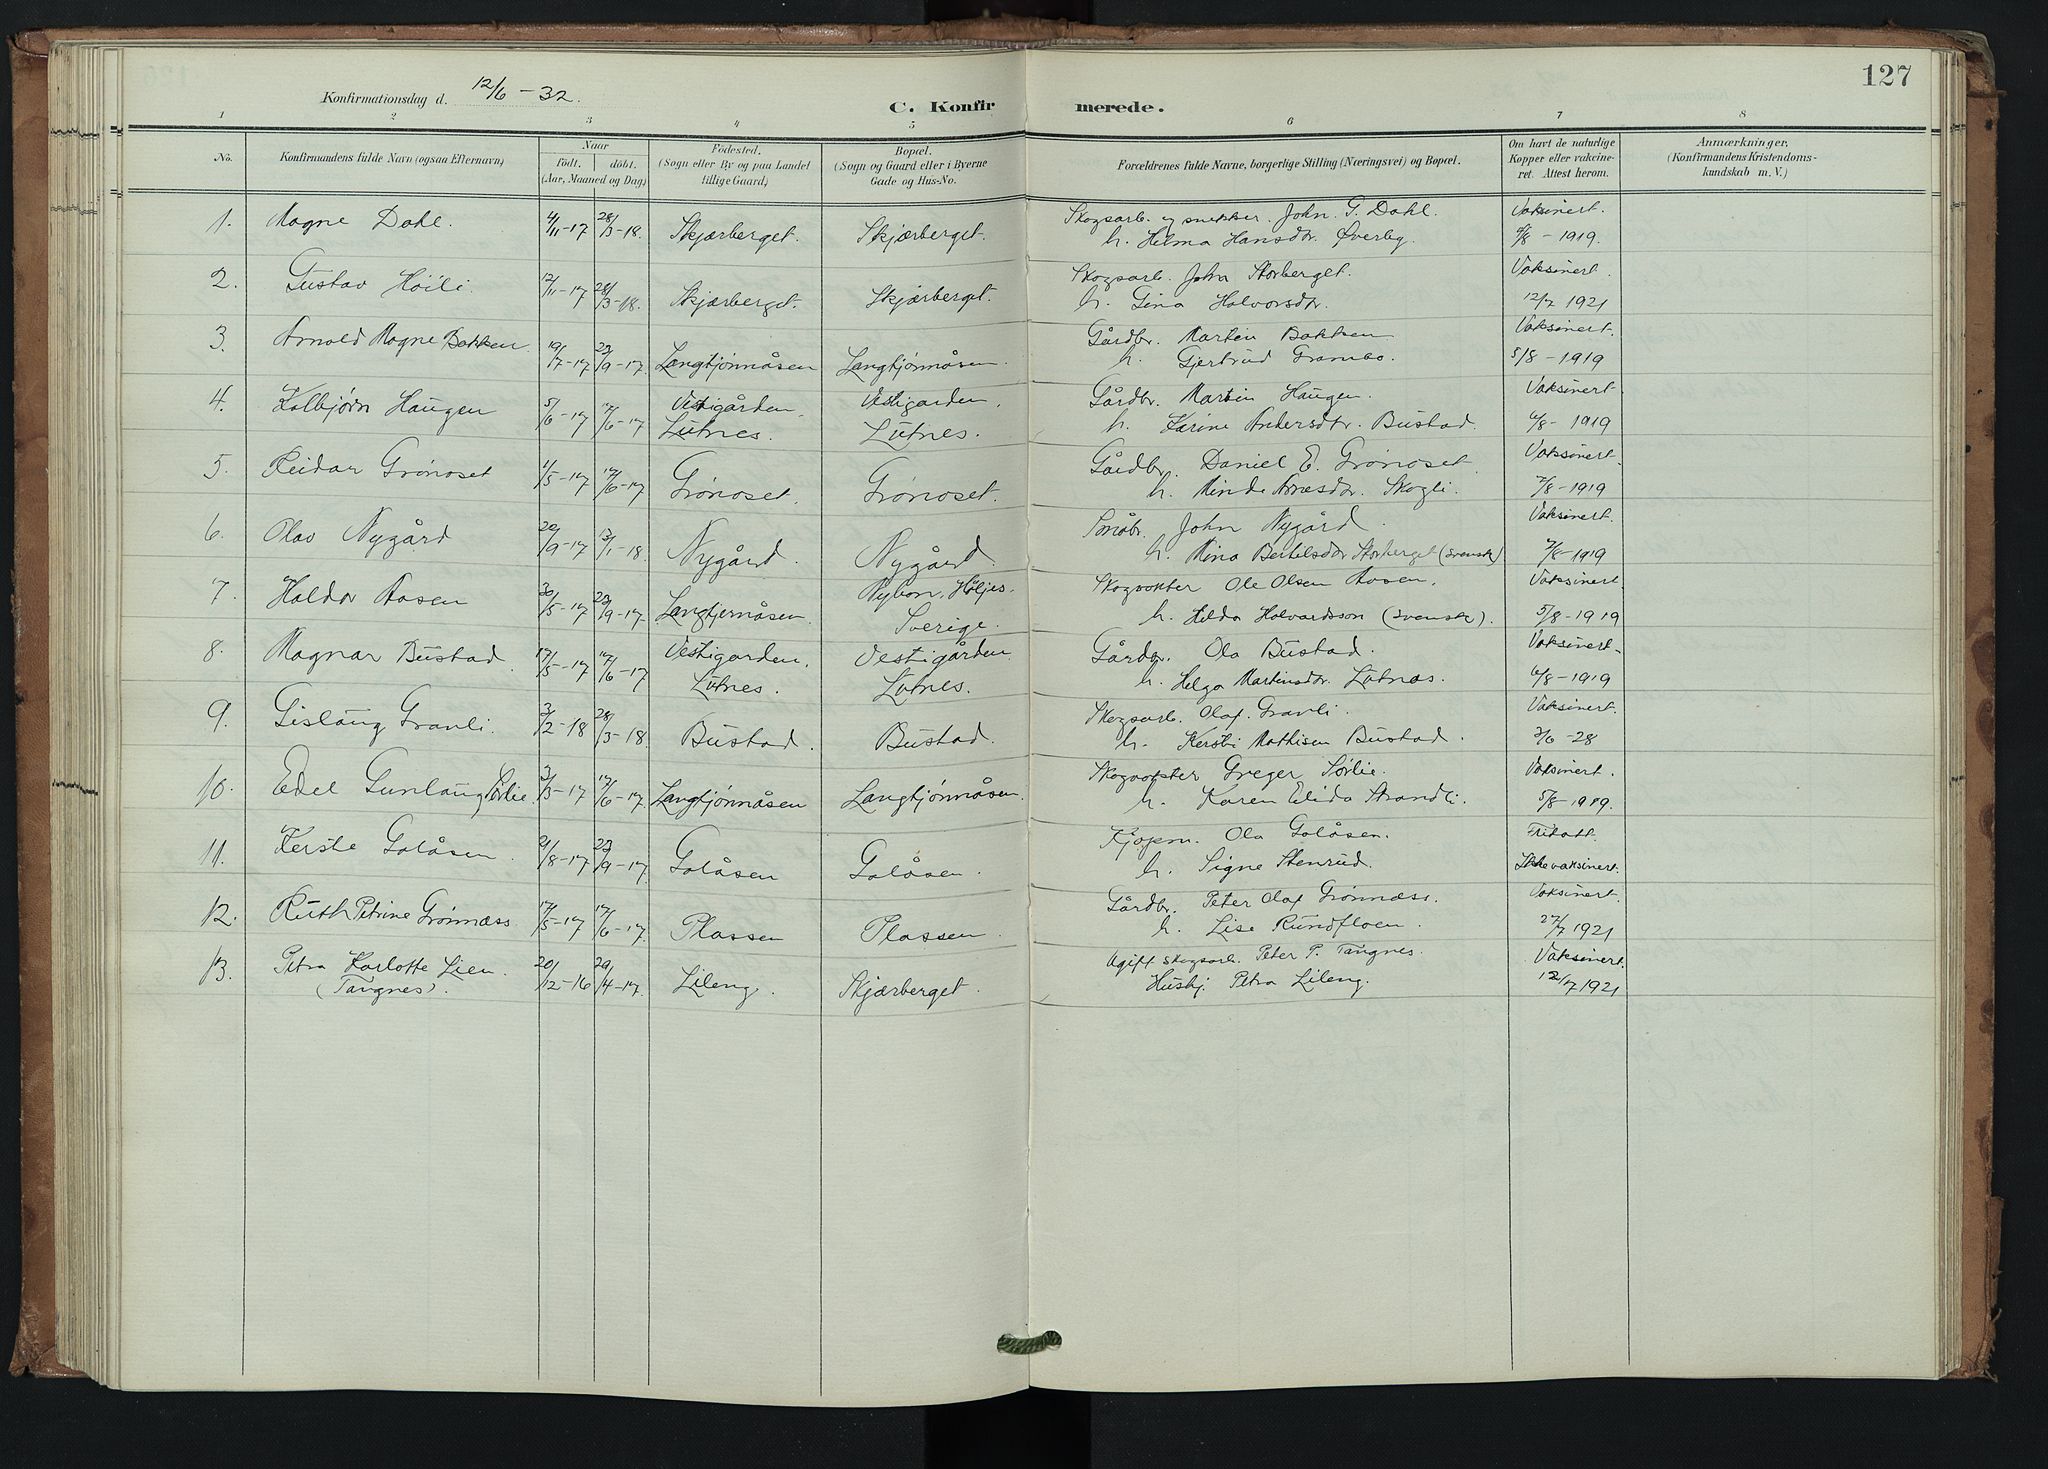 127
Konfirmationsdag d. 12/6 – 32.
C. Konfirmerede.
1 2 3 4 5 6 7 8
No. Konfirmandens fulde Navn (ogsaa Efternavn) Naar født. døbt. (Aar, Maaned og Dag) Fødested. (Sogn eller By og paa Landet tillige Gaard) Bopæl. (Sogn og Gaard eller i Byerne Gade og Hus-No. Forældrenes fulde Navne, borgerlige Stilling (Næringsvei) og Bopæl. Om havt de naturlige Kopper eller vakcineret. Attest herom. Anmærkninger. (Konfirmandens Kristendomskundskab m. V.)
1. Magne Dahl. 4/11-17 28/3-18. Skjærberget. Skjærberget. Skogsarb. og snekker. John. G. Dahl. Vaksinert.
h. Helma Hansdtr. Øverby. /8 – 1919.
2. Gustav Høili. 12/11-17 28/3-18. Skjærberget. Skjærberget. Skogsarb. John Storberget. Vaksinert.
h. Gina Halvorsdtr. 12/7 1921
3. Arnold Magne Bakken. 19/7-17 23/9-17 Langtjønnåsen Langtjønnåsen. Gårdbr. Martin Bakken Vaksinert.
h. Gjertrud Grambo. 5/8 – 1919
4. Kolbjørn Haugen 5/6-17 17/6-17 Vestigården. Vestigarden. Gårdbr. Martin Haugen. Vaksinert
Lutnes. Lutnes. h. Karine Andersdtr. Bustad. 6/8 – 1919
5. Reidar Grønoset 1/5-17 17/6-17 Grønoset. Grønoset. Gårdbr. Daniel E. Grønoset. Vaksinert
h. Minda Arnesdtr. Skogli. 7/8 – 1919
6. Olav Nygård 20/9-17 13/1-18. Nygård. Nygård. Småbr. John Nygård. Vaksinert.
h. Mina Bertilsdtr Storberget (svensk) 7/8-1919
7. Haldor Aasen 30/5-17 23/9-17 Langtjernåsen. Nybon, Höljes. Skogvokter Ole Olsen Aasen. Vaksinert.
Sverige. h. Hilda Halvardsson (svensk). 5/8-1919
8. Magnar Bustad. 17/5-17 17/6-17 Vestigarden. Vestigården. Gårdbr. Ola Bustad. Vaksinert.
Lutnes. Lutnes. h. Helga Martinsdtr. Lutnæs. 6/8 – 1919
9. Gislaug Granli. 3/2-18 28/3-18. Bustad. Bustad. Skogsarb. Olaf. Granli. Vaksinert.
h. Kersti Mathisen Bustad. 3/6 – 28
10. Edel Gunlaug Sørlie. 3/3-17 17/6-17. Langtjønnåsen Langtjønnåsen. Skogvokter Greger Sørlie. Vaksinert.
h. Karen Elida Strandli. 5/8 – 1919.
11. Kerste Galåsen. 21/8-17 23/9-17. Galåsen Galåsen. Kjøpm. Ola Galåsen. Fritatt.
h. Signe Stenrud. Ikke vaksinert.
12. Ruth Petrine Grønnæss 17/5-17 17/6-17. Plassen Plassen. Gårdbr. Peter Olaf Grønnæss. Vaksinert.
h. Lise Rundfloen. 27/7 1921
13. Petra Karlotte Lien. 20/12-16 29/4-17. Lileng. Skjærberget. Ugift skogsarb. Peter P. Tangnes. Vaksinert.
(Tangnes). Hushj. Petra Lileng. 12/7 1921